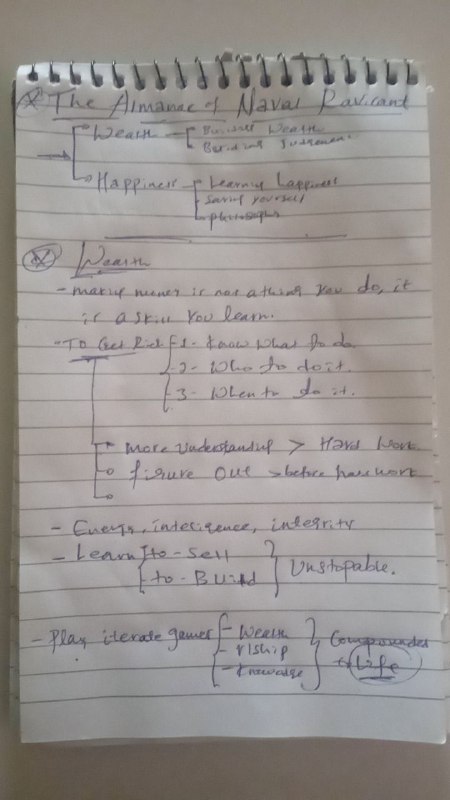 The Almanac of Naval Ravicant
Wealth - Building Wealth
Building Judgement.
Happiness - Learning Happiness
- Saving yourself
- Philosophy
Wealth
- making money is not a thing you do, it
is a skill you learn.
- To Get Rich 1 - Know What to do
2 - Who to do it.
3 - When to do it.
More Understanding > Hard Work
figure out > before hard work
- Energy, inteligence, integrity
- Learn to - Sell
to - Build } Unstopable.
- Play iterate games - Wealth
- r/ship
- Knowledge } Compounded
Life